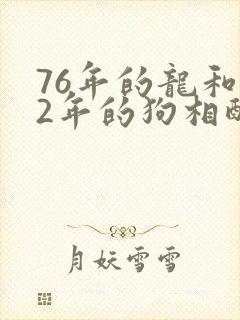 76年的龍和
2年的狗相
月妖雪雪